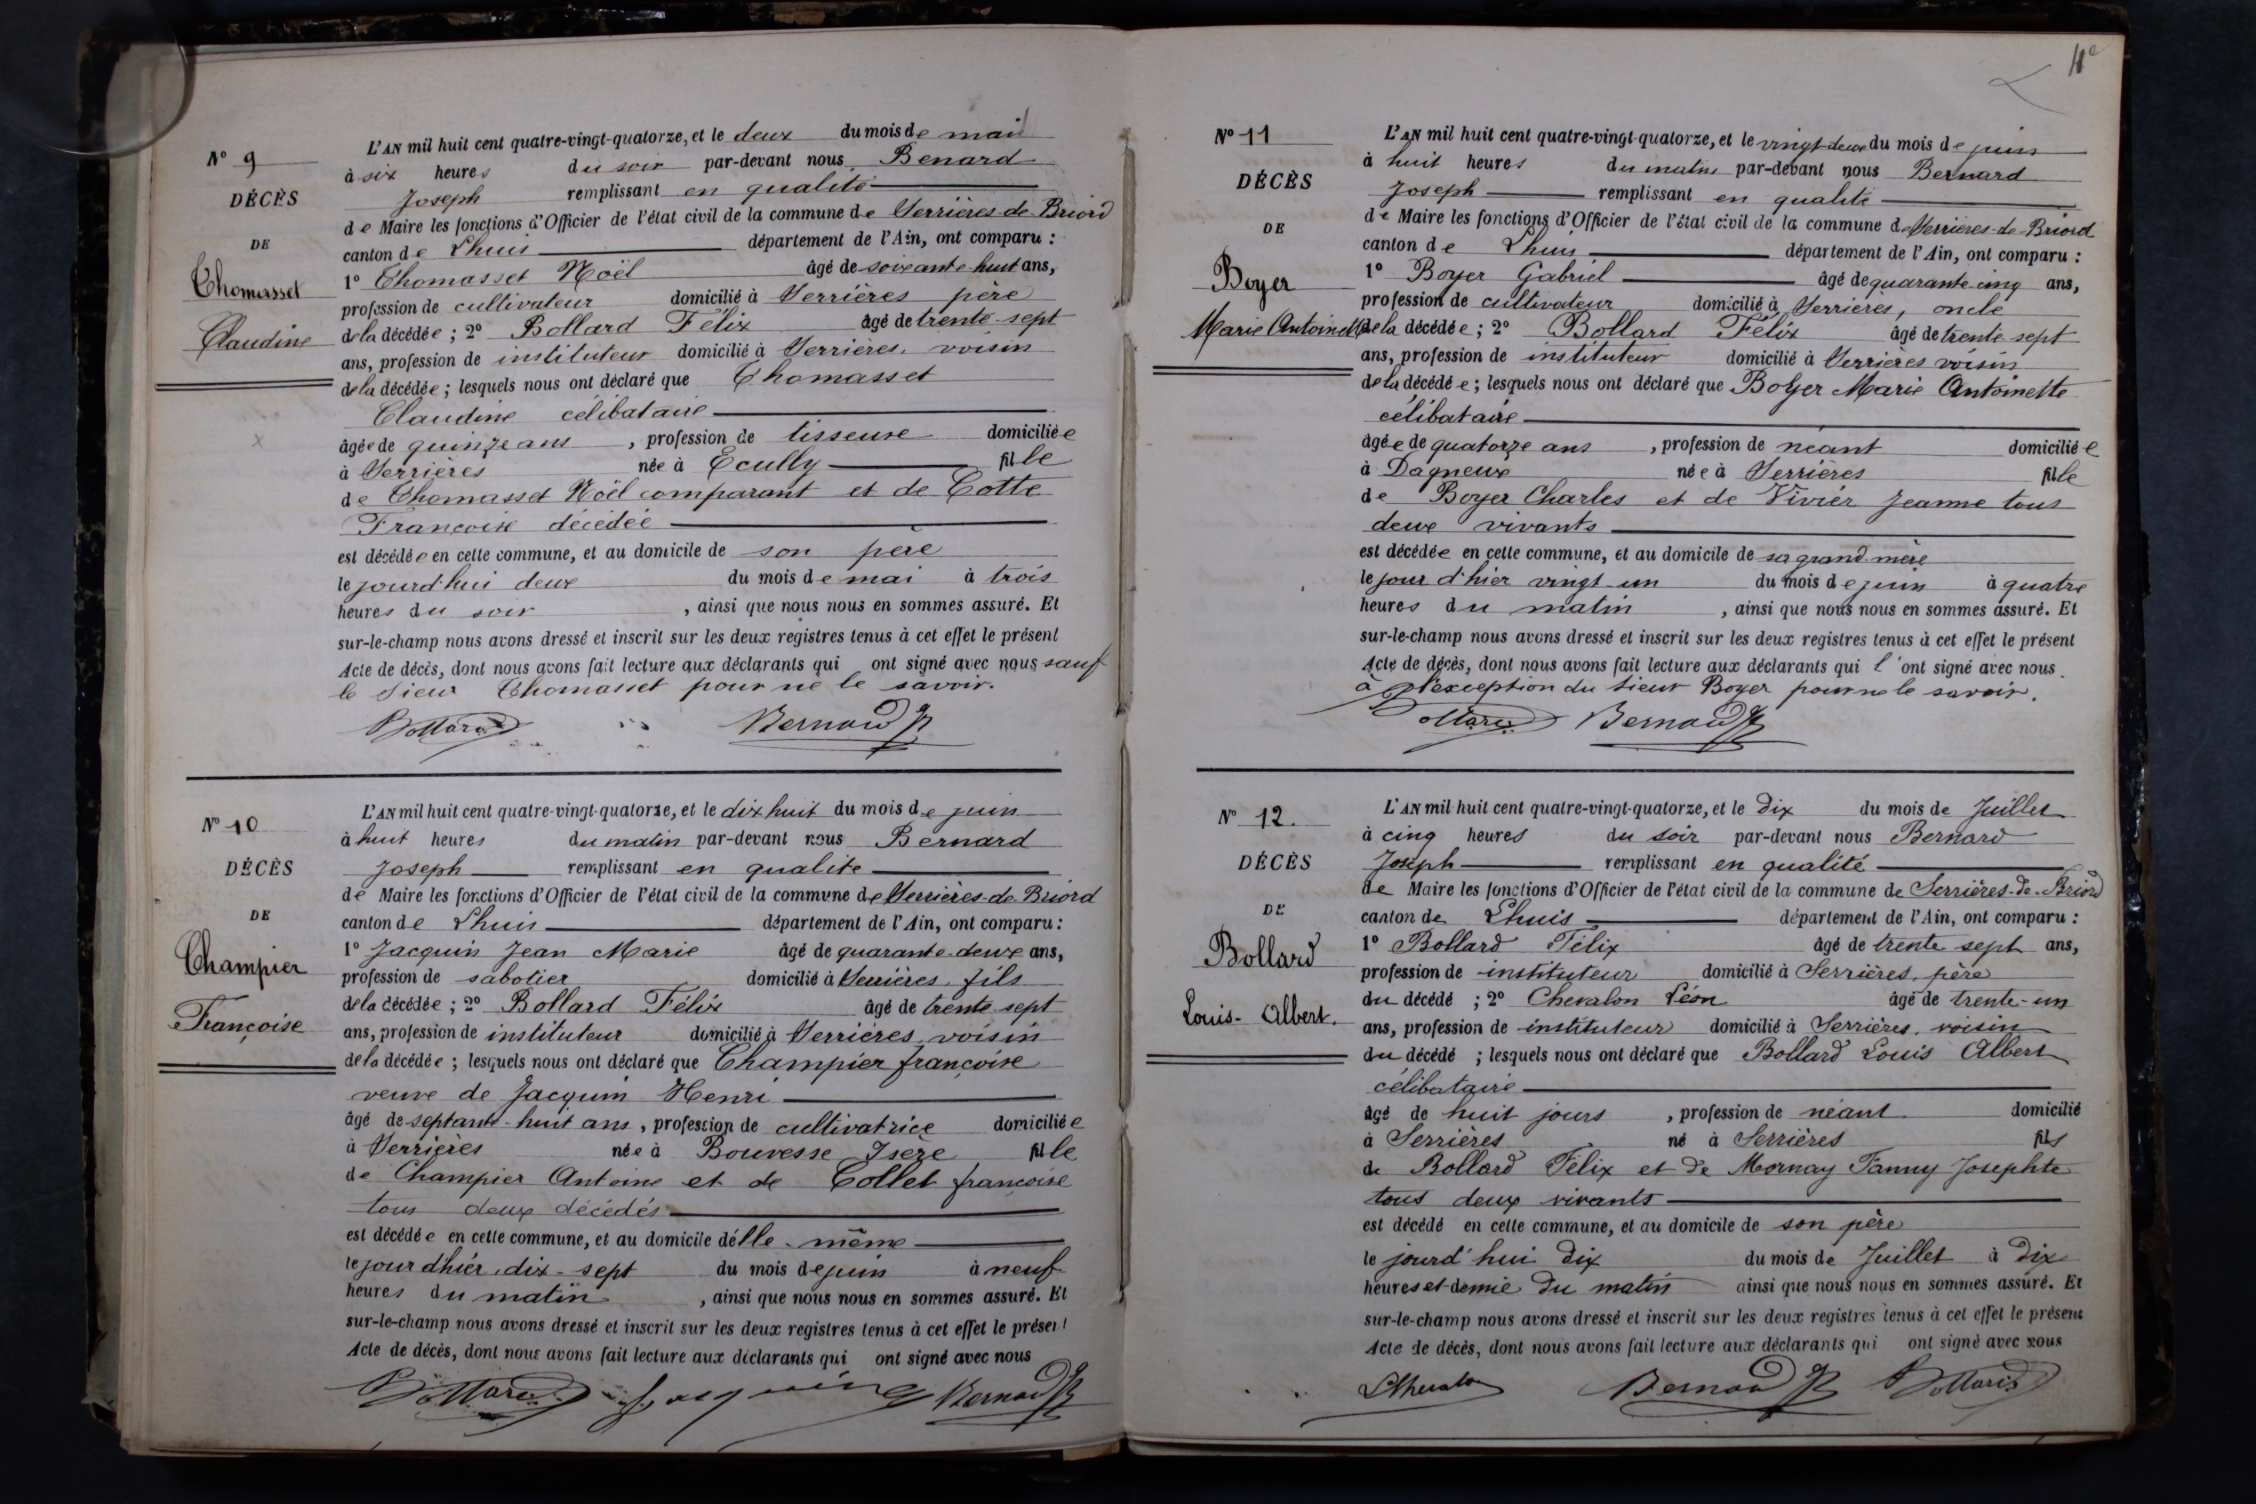 Nº 9
DÉCÈS
DE
Thomasset
Claudine
L'AN mil huit cent quatre-vingt-quatorze, et le deux du mois de mai
à six heures du soir par-devant nous Benard
Joseph remplissant en qualité
de Maire les fonctions d'Officier de l'état civil de la commune de Serrières-de-Briord
canton de Lhuis département de l'Ain, ont comparu :
1º Thomasset Noël âgé de soixante-huit ans,
profession de cultivateur domicilié à Serrières père
de la décédée ; 2º Bollard Félix âgé de trente-sept
ans, profession de instituteur domicilié à Serrières, voisin
de la décédée ; lesquels nous ont déclaré que Thomasset
Claudine célibataire
âgée de quinze ans , profession de tisseuse domiciliée
à Serrières née à Ecully fille
de Thomasset Noël comparant et de Cotte
Françoise décédée
est décédée en cette commune, et au domicile de son père
le jourd'hui deux du mois de mai à trois
heures du soir , ainsi que nous nous en sommes assuré. Et
sur-le-champ nous avons dressé et inscrit sur les deux registres tenus à cet effet le présent
Acte de décès, dont nous avons fait lecture aux déclarants qui ont signé avec nous sauf
le sieur Thomasset pour ne le savoir.
Bollard Bernard J
Nº 10
DÉCÈS
DE
Champier
Françoise
L'AN mil huit cent quatre-vingt-quatorze, et le dix huit du mois de juin
à huit heures du matin par-devant nous Bernard
Joseph remplissant en qualité
de Maire les fonctions d'Officier de l'état civil de la commune de Serrières-de-Briord
canton de Lhuis département de l'Ain, ont comparu :
1º Jacquin Jean Marie âgé de quarante-deux ans,
profession de sabotier domicilié à Serrières, fils
de la décédée ; 2º Bollard Félix âgé de trente-sept
ans, profession de instituteur domicilié à Serrières, voisin
de la décédée ; lesquels nous ont déclaré que Champier françoise
veuve de Jacquin Henri
âgé de septante-huit ans , profession de cultivatrice domiciliée
à Serrières née à Bouvesse Isère fille
de Champier Antoine et de Collet françoise
tous deux décédés
est décédée en cette commune, et au domicile d'elle-même
le jour d'hier, dix-sept du mois de juin à neuf
heures du matin , ainsi que nous nous en sommes assuré. Et
sur-le-champ nous avons dressé et inscrit sur les deux registres tenus à cet effet le présent
Acte de décès, dont nous avons fait lecture aux déclarants qui ont signé avec nous
Bollard Jacquin Bernard J
Nº 11
DÉCÈS
DE
Boyer
Marie Antoinette
L'AN mil huit cent quatre-vingt-quatorze, et le vingt-deux du mois de juin
à huit heures du matin par-devant nous Bernard
Joseph remplissant en qualité
de Maire les fonctions d'Officier de l'état civil de la commune de Serrières-de-Briord
canton de Lhuis département de l'Ain, ont comparu :
1º Boyer Gabriel âgé de quarante-cinq ans,
profession de cultivateur domicilié à Serrières, oncle
de la décédée ; 2º Bollard Félix âgé de trente-sept
ans, profession de instituteur domicilié à Serrières voisin
de la décédée ; lesquels nous ont déclaré que Boyer Marie Antoinette
célibataire
âgée de quatorze ans , profession de néant domiciliée
à Dagneux née à Serrières fille
de Boyer Charles et de Vivier Jeanne tous
deux vivants
est décédée en cette commune, et au domicile de sa grand-mère
le jour d'hier vingt-un du mois de juin à quatre
heures du matin , ainsi que nous nous en sommes assuré. Et
sur-le-champ nous avons dressé et inscrit sur les deux registres tenus à cet effet le présent
Acte de décès, dont nous avons fait lecture aux déclarants qui l'ont signé avec nous
à l'exception du sieur Boyer pour ne le savoir.
Bollard Bernard J
Nº 12.
DÉCÈS
DE
Bollard
Louis-Albert.
L'AN mil huit cent quatre-vingt-quatorze, et le Dix du mois de Juillet
à cinq heures du soir par-devant nous Bernard
Joseph remplissant en qualité
de Maire les fonctions d'Officier de l'état civil de la commune de Serrières-de-Briord
canton de Lhuis département de l'Ain, ont comparu :
1º Bollard Félix âgé de trente sept ans,
profession de instituteur domicilié à Serrières, père
du décédé ; 2º Chevalon Léon âgé de trente-un
ans, profession de instituteur domicilié à Serrières, voisin
du décédé ; lesquels nous ont déclaré que Bollard Louis Albert
célibataire
âgé de huit jours , profession de néant domicilié
à Serrières né à Serrières fils
de Bollard Félix et de Mornay Fanny Josephte
tous deux vivants
est décédé en cette commune, et au domicile de son père
le jourd'hui dix du mois de Juillet à Dix
heures et demie du matin ainsi que nous nous en sommes assuré. Et
sur-le-champ nous avons dressé et inscrit sur les deux registres tenus à cet effet le présent
Acte de décès, dont nous avons fait lecture aux déclarants qui ont signé avec nous
LChevalon Bernard J Bollard